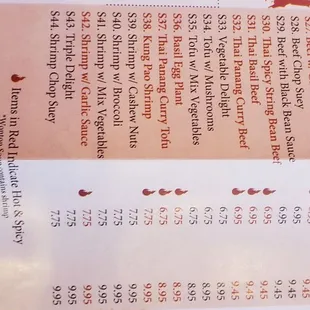 9.45
S28. Beef Chop Suey 6.95 9.45
S29. Beef with Black Bean Sauce 6.95 9.45
S30. Thai Spicy String Bean Beef 6.95 9.45
S31. Thai Basil Beef 6.95 9.45
S32. Thai Panang Curry Beef 6.95 9.45
S33. Vegetable Delight 5.95 8.95
S34. Tofu w/ Mushrooms 5.95 8.95
S35. Tofu w/ Mix Vegetables 5.95 8.95
S36. Basil Egg Plant 6.75 8.95
S37. Thai Panang Curry Tofu 6.75 8.95
S38. Kung Pao Shrimp 7.75 9.95
S39. Shrimp w/ Cashew Nuts 7.75 9.95
S40. Shrimp w/ Broccoli 7.75 9.95
S41. Shrimp w/ Mix Vegetables 7.75 9.95
S42. Shrimp w/ Garlic Sauce 7.75 9.95
S43. Triple Delight 7.75 9.95
S44. Shrimp Chop Suey 7.75 9.95
Items in Red Indicate Hot & Spicy
*Wonton Soup contains shrimp